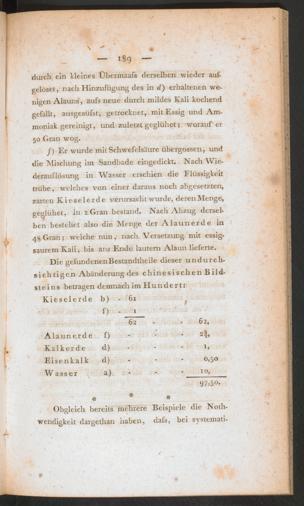 — 189 —
durch ein kleines Übermaafs derselben wieder auf-
gelöset, nach Hinzufügung des in d) erhaltenen we-
nigen Alauns, aufs neue durch mildes Kali kochend
gefällt, ausgesüfst, getrocknet, mit Essig und Am-
moniak gereinigt, und zuletzt geglühet; worauf er
50 Gran wog.
f) Er wurde mit Schwefelsäure übergossen, und
die Mischung im Sandbade eingedickt. Nach Wie-
derauflösung in Wasser erschien die Flüssigkeit
trübe, welches von einer daraus noch abgesetzten,
zarten Kieselerde verursacht wurde, deren Menge,
geglühet, in 2 Gran bestand. Nach Abzug dersel-
ben bestehet also die Menge der Alaunerde in
48 Gran; welche nun, nach Versetzung mit essig-
saurem Kali, bis ans Ende lautern Alaun lieferte.
Die gefundenen Bestandtheile dieser undurch-
sichtigen Abänderung des chinesischen Bild-
steins betragen demnach im Hundert:
Kieselerde b) - 61
f) - 1
62 - - 62,
Alaunerde f) - - - 24,
Kalkerde d) - - - 1,
Eisenkalk d) - - - 0,50
Wasser a) - - - 10,
97,50.
* * *
Obgleich bereits mehrere Beispiele die Noth-
wendigkeit dargethan haben, dafs, bei systemati-